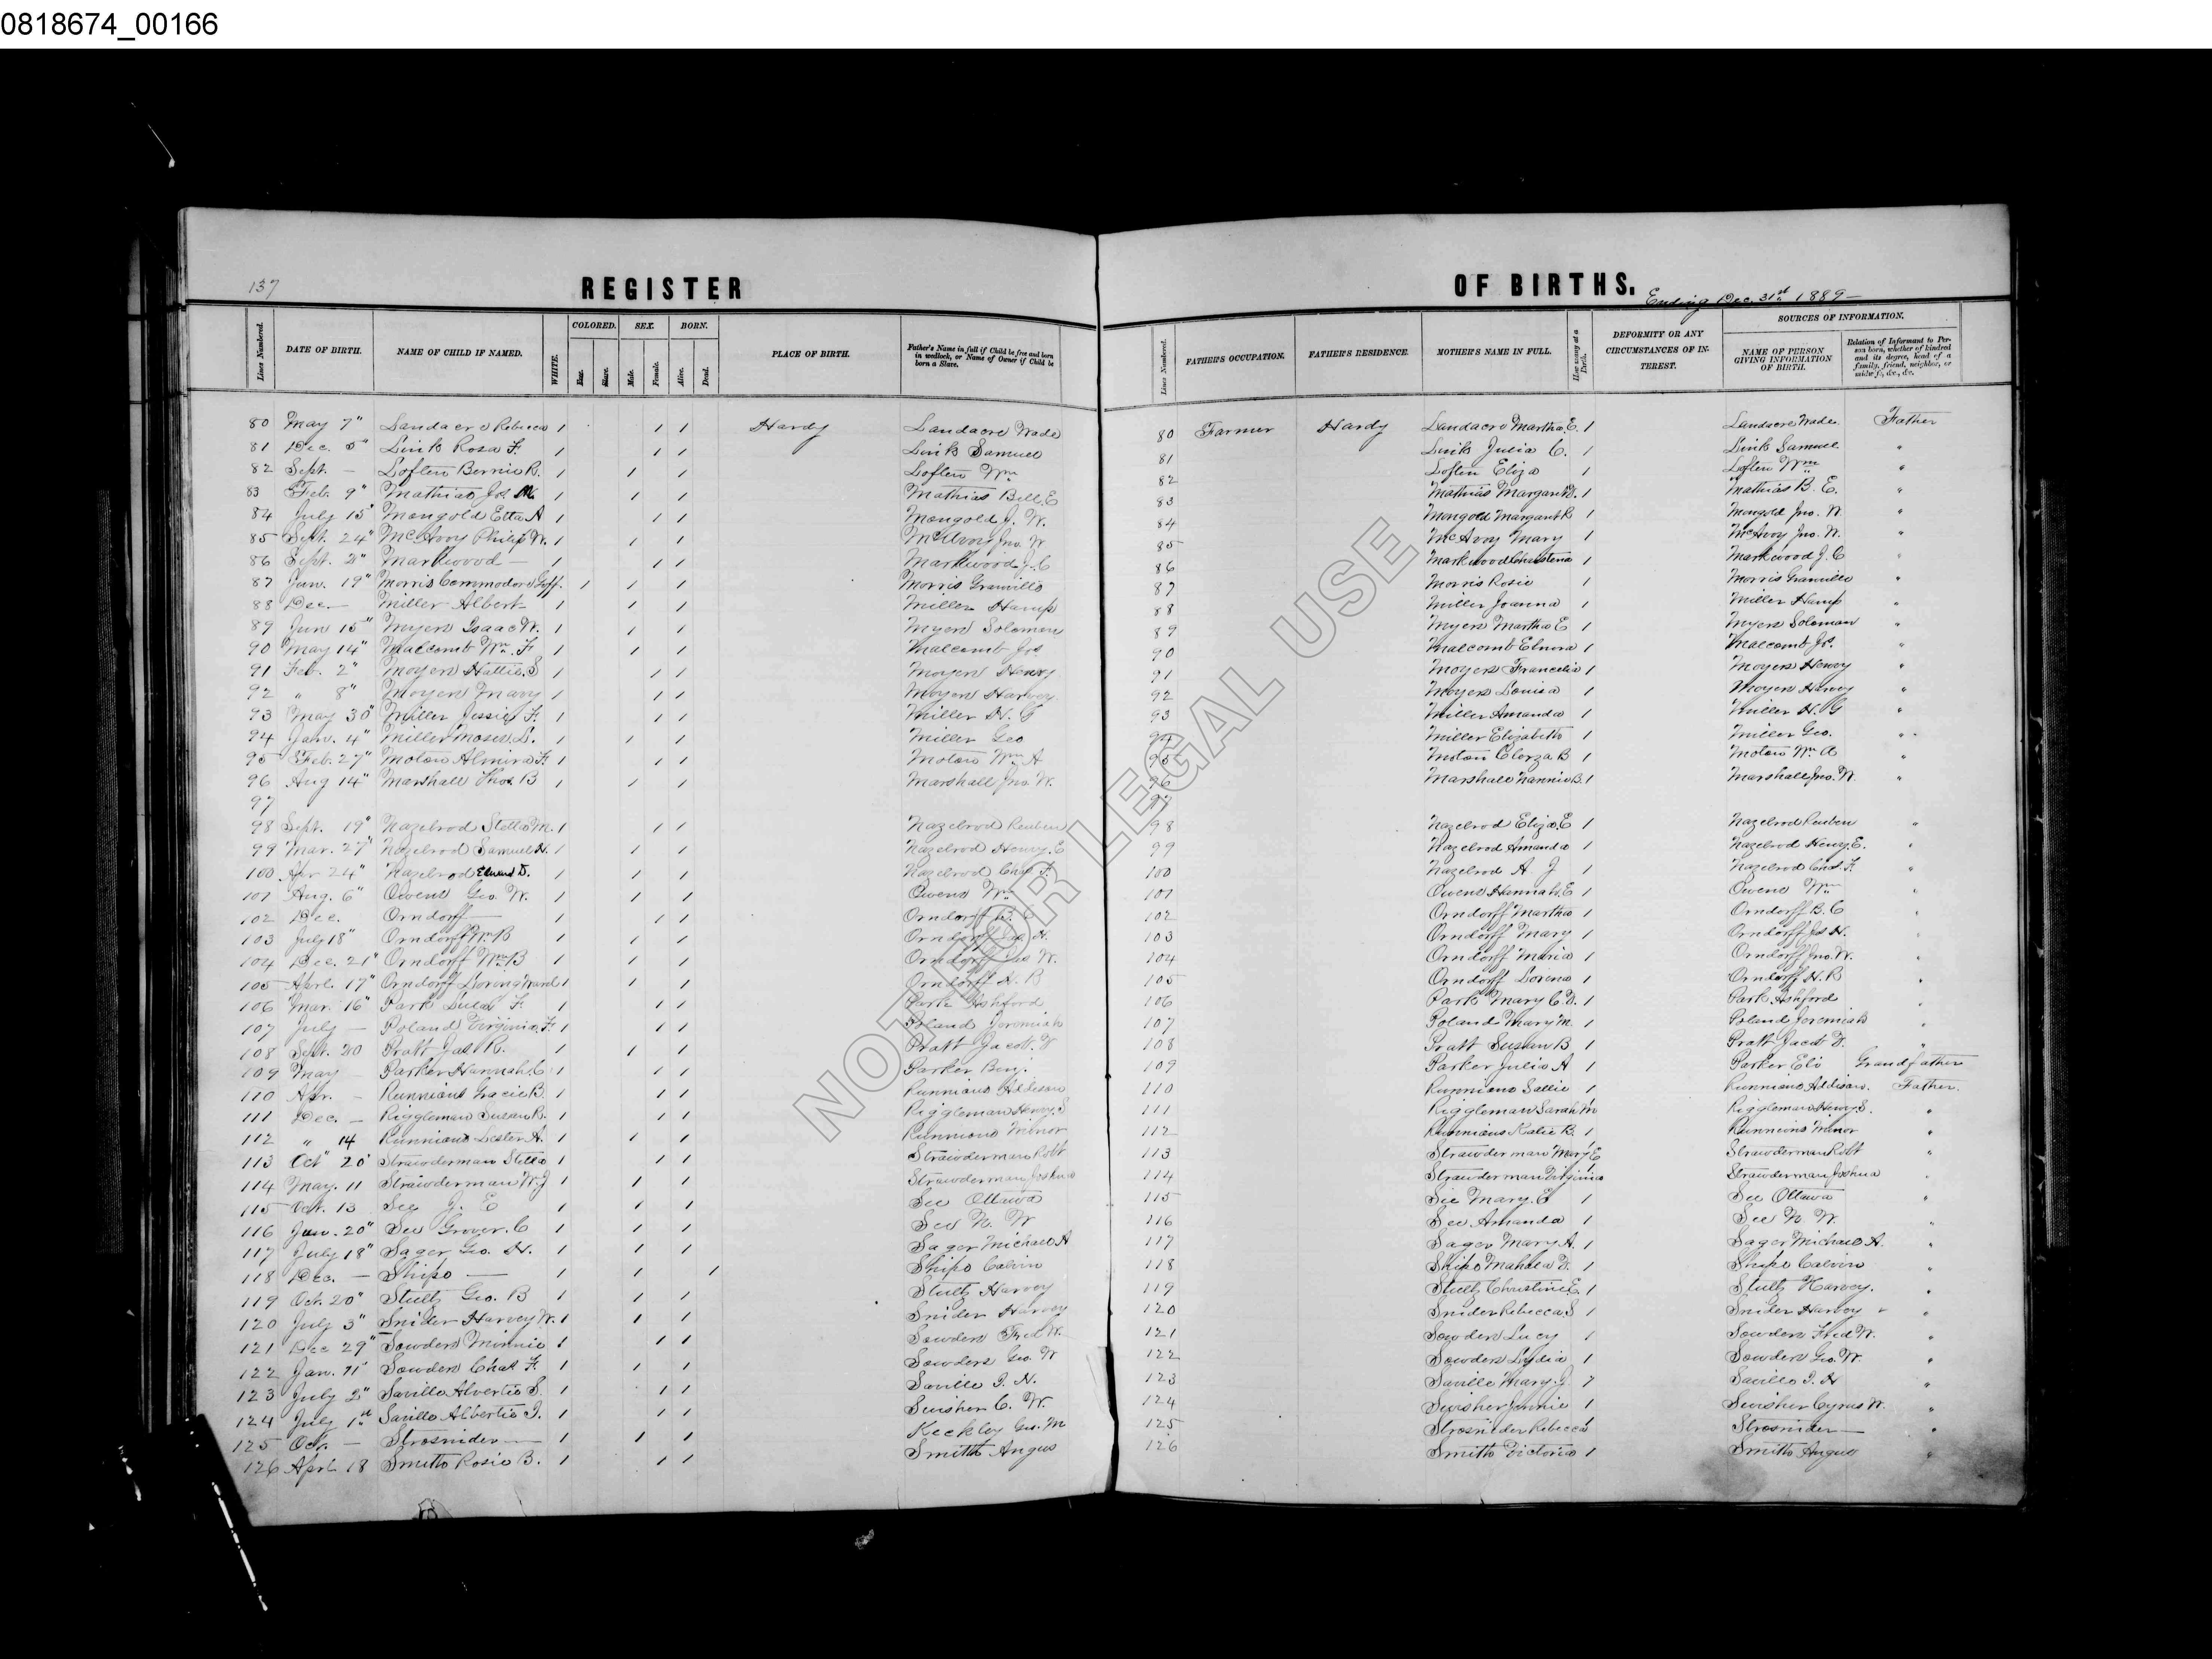 0818674_00166
137
REGISTER OF BIRTHS. Ending Dec. 31st 1889
Lines Numbered. DATE OF BIRTH. NAME OF CHILD IF NAMED. WHITE. COLORED. Free. Slave. SEX. Male. Female. BORN. Alive. Dead. PLACE OF BIRTH. Father's Name in full if Child be free and born in wedlock, or Name of Owner if Child be born a Slave. Lines Numbered. FATHER'S OCCUPATION. FATHER'S RESIDENCE. MOTHER'S NAME IN FULL. How many at a Birth. DEFORMITY OR ANY CIRCUMSTANCES OF INTEREST. SOURCES OF INFORMATION. NAME OF PERSON GIVING INFORMATION OF BIRTH. Relation of Informant to Person born, whether of kindred and its degree, head of a family, friend, neighbor, or midwife, &c., &c.
80 May 7" Landacre Rebecca 1 1 1 Hardy Landacre Wade 80 Farmer Hardy Landacre Martha E. 1 Landacre Wade Father
81 Dec. 5" Link Rosa F. 1 1 1 Link Samuel 81 Link Julia C. 1 Link Samuel "
82 Sept. — Loften Bernie R. 1 1 1 Loften Wm 82 Loften Eliza 1 Loften Wm "
83 Feb. 9" Mathias Jos. M. 1 1 1 Mathias Bell E 83 Mathias Margaret 1 Mathias B. E. "
84 July 15" Mongold Etta A 1 1 1 Mongold J. W. 84 Mongold Margaret R 1 Mongold Jno. W. "
85 Sept. 24" McAvoy Philip W. 1 1 1 McAvoy Jno. W 85 McAvoy Mary 1 McAvoy Jno. W. "
86 Sept. 2" Markwood — 1 1 1 Markwood J. C 86 Markwood Christena 1 Markwood J. C "
87 Jun. 19" Morris Commodore Goff. 1 1 1 Morris Granville 87 Morris Rosie 1 Morris Granville "
88 Dec. — Miller Albert 1 1 1 Miller Hamp 88 Miller Joanna 1 Miller Hamp "
89 Jun 15" Myers Isaac W. 1 1 1 Myers Soloman 89 Myers Martha E 1 Myers Soloman "
90 May 14" Malcomb Wm. F. 1 1 1 Malcomb Jos 90 Malcomb Elnora 1 Malcomb Jos. "
91 Feb. 2" Moyers Hattie S 1 1 1 Moyers Henry 91 Moyers Francelia 1 Moyers Henry "
92 " 8" Moyers Mary 1 1 1 Moyers Harvey 92 Moyers Louisa 1 Moyers Harvey "
93 May 30" Miller Jessie F. 1 1 1 Miller H. G 93 Miller Amanda 1 Miller H. G "
94 Jan. 4" Miller Moses L. 1 1 1 Miller Geo 94 Miller Elizabeth 1 Miller Geo. "
95 Feb. 27" Moton Almira F. 1 1 1 Moton Wm A 95 Moton B 1 Moton Wm A "
96 Aug 14" Marshall Thos. B 1 1 1 Marshall Jno. W. 96 Marshall Nannie B. 1 Marshall Jno. W. "
97 97
98 Sept. 19" Nazelrod Stella M. 1 1 1 Nazelrod Reuben 98 Nazelrod Eliza E 1 Nazelrod Reuben "
99 Mar. 27" Nazelrod Samuel H. 1 1 1 Nazelrod Henry. E 99 Nazelrod Amanda 1 Nazelrod Henry. E. "
100 Apr 24" Nazelrod Edward D. 1 1 1 Nazelrod Chas. F. 100 Nazelrod A J 1 Nazelrod Chas. F. "
101 Aug. 6" Owens Geo. W. 1 1 1 Owens Wm 101 Owens Hannah. E 1 Owens Wm "
102 Dec. Orndorff — 1 1 1 Orndorff B. C 102 Orndorff Martha 1 Orndorff B. C "
103 July 18" Orndorff Wm B 1 1 1 Orndorff H. 103 Orndorff Mary 1 Orndorff Jos H. "
104 Dec. 21" Orndorff Wm B 1 1 1 Orndorff W. 104 Orndorff Maria 1 Orndorff Jno. W. "
105 Aprl. 17" Orndorff Loring Ward 1 1 1 Orndorff H. B 105 Orndorff Lorena 1 Orndorff H. B "
106 Mar. 16" Park F. 1 1 1 Park Ashford 106 Park Mary C. 1 Park Ashford "
107 July — Poland Virginia. F. 1 1 1 Poland Jeremiah 107 Poland Mary M. 1 Poland Jeremiah "
108 Sept. 20 Pratt Jas. R. 1 1 1 Pratt Jacob. 108 Pratt Susan B 1 Pratt Jacob "
109 May — Parker Hannah. C 1 1 1 Parker Benj. 109 Parker Julia A 1 Parker Eli Grandfather
110 Apr. — Runnions Gracie B. 1 1 1 Runnions Addison 110 Runnions Sallie 1 Runnions Addison. Father.
111 Dec. — Riggleman Susan R. 1 1 1 Riggleman Henry. S 111 Riggleman Sarah M 1 Riggleman Henry S. "
112 " 14 Runnions Lester A. 1 1 1 Runnions Minor 112 Runnions Katie B. 1 Runnions Minor "
113 Oct" 20" Strawderman Stella 1 1 1 Strawderman Robt 113 Strawderman Mary E 1 Strawderman Robt "
114 May. 11 Strawderman W. J 1 1 1 Strawderman Joshua 114 Strawderman Virginia Strawderman Joshua "
115 Oct. 13 See J. E 1 1 1 See Ottawa 115 See Mary. E 1 See Ottawa "
116 Jan. 20" See Grover. C 1 1 1 See N. W 116 See Amanda 1 See N. W. "
117 July 18" Sager Geo. H. 1 1 1 Sager Michael A 117 Sager Mary. A. 1 Sager Michael A. "
118 Dec. — Shipe — 1 1 1 Shipe Calvin 118 Shipe Mahala 1 Shipe Calvin "
119 Oct. 20" Stultz Geo. B 1 1 1 Stultz Harvey 119 Stultz Christine E. 1 Stultz Harvey. "
120 July 3" Snider Harvey W. 1 1 1 Snider Harvey 120 Snider Rebecca S 1 Snider Harvey "
121 Dec 29" Sowders Minnie 1 1 1 Sowders Fred W. 121 Sowders Lucy 1 Sowders Fred W. "
122 Jan. 11" Sowders Chas F. 1 1 1 Sowders Geo. W 122 Sowders Lydia 1 Sowders Geo. W. "
123 July 2" Saville Alvertie S. 1 1 1 Saville J. H. 123 Saville Mary. J. 1 Saville J. H "
124 July 1st Saville Albertie J. 1 1 1 Swisher C. W. 124 Swisher Jennie 1 Swisher Cyrus W. "
125 Oct. — Strosnider — 1 1 1 Keckley Geo. M 125 Strosnider Rebecca 1 Strosnider — "
126 Aprl 18 Smith Rosie B. 1 1 1 Smith Angus 126 Smith Victoria 1 Smith Angus "
NOT FOR LEGAL USE